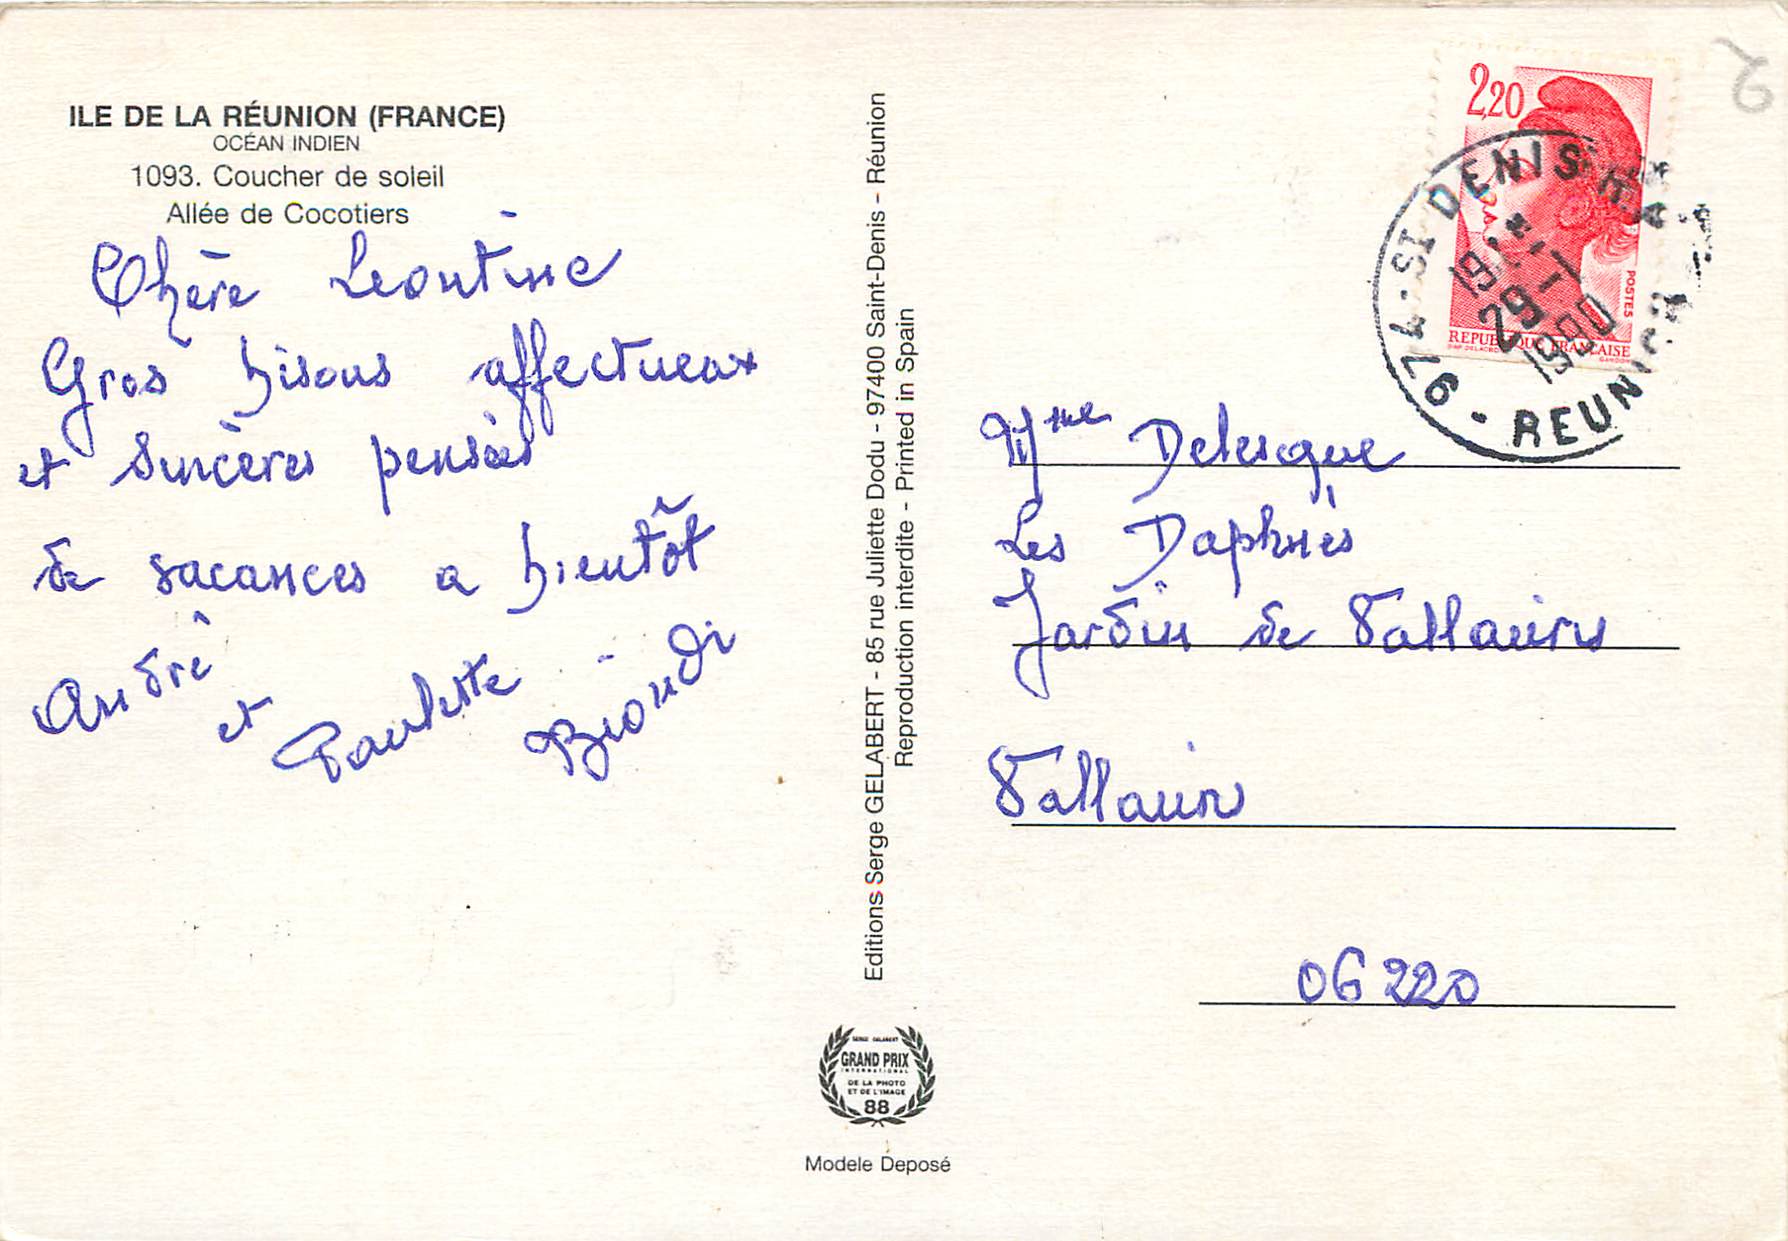 ILE DE LA RÉUNION (FRANCE)
OCÉAN INDIEN
1093. Coucher de soleil
Allée de Cocotiers
Chère Leontine
Gros bisous affectueux
et sincères pensées
de vacances a bientôt
André
et Paulette Biondi
Editions Serge GELABERT - 85 rue Juliette Dodu - 97400 Saint-Denis - Réunion
Reproduction interdite - Printed in Spain
SERGE GELABERT
GRAND PRIX
INTERNATIONAL
DE LA PHOTO
ET DE L'IMAGE
88
Modele Deposé
2,20
POSTES
REPUBLIQUE FRANÇAISE
974 - ST DENIS
29 - 1
1990
REUNION
Mme Delesque
Les Daphnés
Jardin de Vallauris
Vallauris
06220